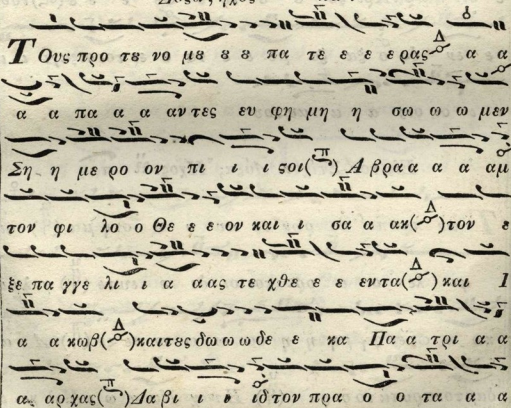 Τους προ τȣ νο με ȣ ȣ πα τε ε ε ερας Δ α α
α α πα α α αντες ευ φη μη η σω ω ω μεν
Ση η με ρο ον πι ι ι ϛοι(π) Α βραα α α αμ
τον φι λο ο Θε ε ε ον και ι σα α ακ(Δ)τον ε
ξε πα γγε λι ι α αας τε χθε ε ε εντα(Δ) και Ι
α α κωβ(Δ)καιτες δω ω ω δε ε κα Πα α τρι α α
α αρ χας(π)Δα βι ι ι ιδ τον προ ο ο τα α α